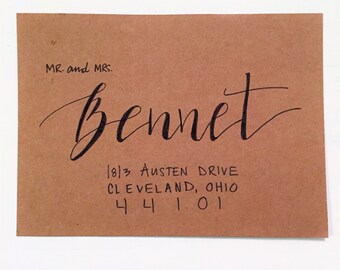 MR. and MRS.
Bennet
1813 AUSTEN DRIVE
CLEVELAND, OHIO
44101